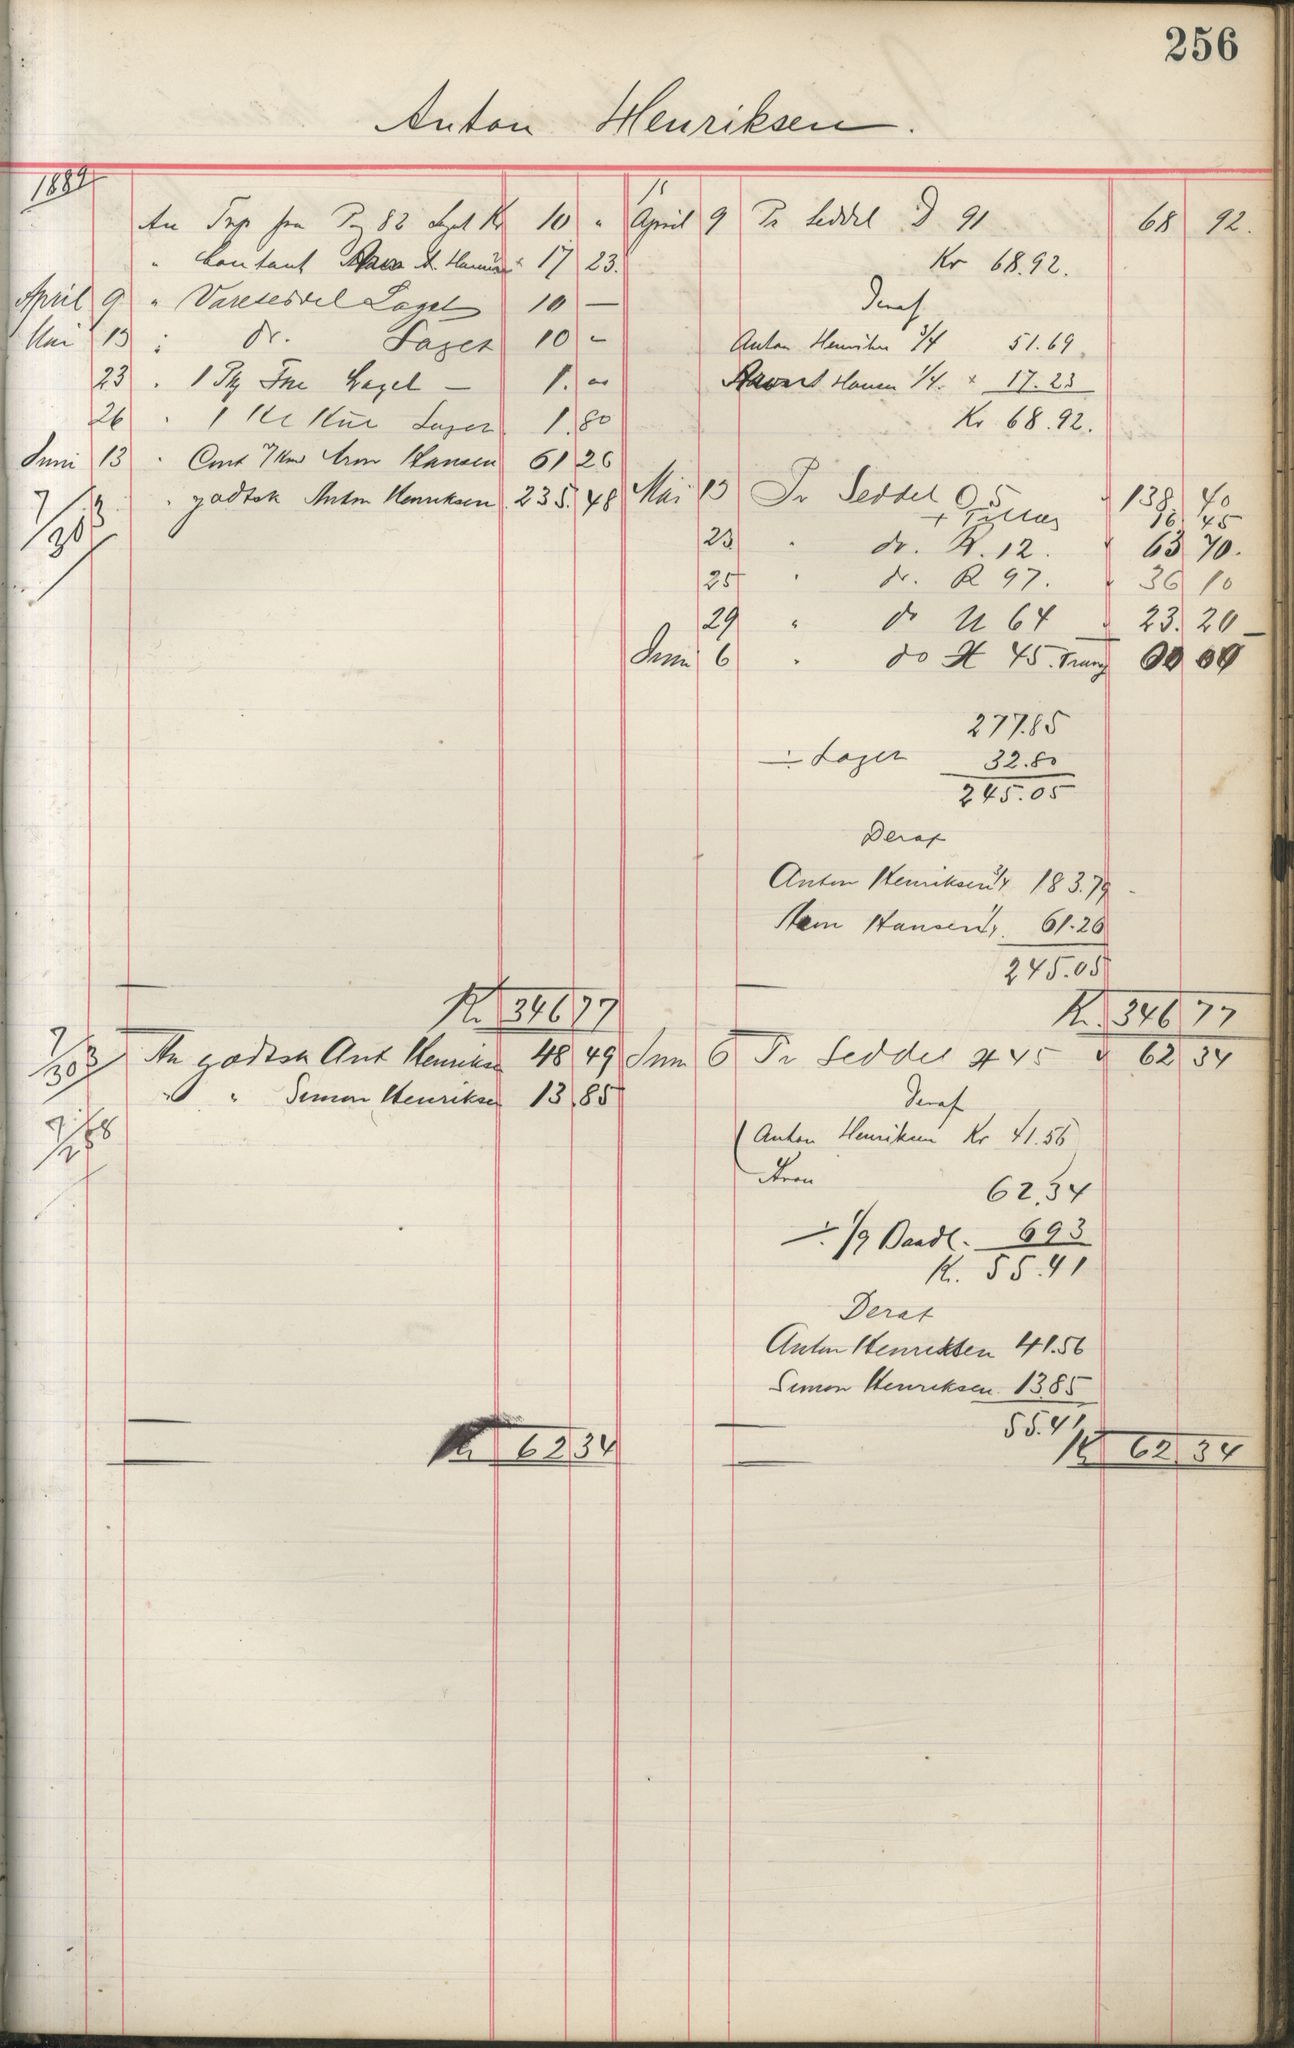 256
Anton Henriksen.
1889
An Trp fra Pag 82 Laget Kr 10 "
" Contant Hansen 17 23.
April 9 " Vareseddel Laget 10 —
Mai 13 " dr. Laget 10 -
23 " 1 Laget — 1. 00
26 " 1 Laget 1.80
Juni 13 " Cont Aron Hansen 61 26
" godtsk Anton Henriksen 235. 48
7/30 3
April 9 Pr Seddel D 91 68 92.
Kr 68.92.
Deraf
Anton Henriksen 3/4 51.69
Hansen 1/4. 17.23
Kr 68.92.
Mai 13 Pr Seddel O 5 138. 40
+ Tillæg 16. 45
23 " dr. R. 12. 63 70.
25 " dr. R 97. 36 10
29 " do U 64 23. 20
Juni 6 " do H 45. 00 00
277.85
÷ Laget 32.80
245.05
Deraf
Anton Henriksen 3/4 183.79
Aron Hansen 1/4. 61.26
245.05
Kr 346 77
Kr. 346 77
7/30 3
An godtsk Ant Henriksen 48 49
" " Simon Henriksen 13.85
7/25 8
Juni 6 Pr Seddel H 45 62 34
Deraf
Anton Henriksen Kr 41.56
Aron
62.34
÷ 1/9 Baadl. 693
Kr. 55.41
Deraf
Anton Henriksen 41.56
Simon Henriksen 13.85
55.41
Kr 62 34
Kr 62 34